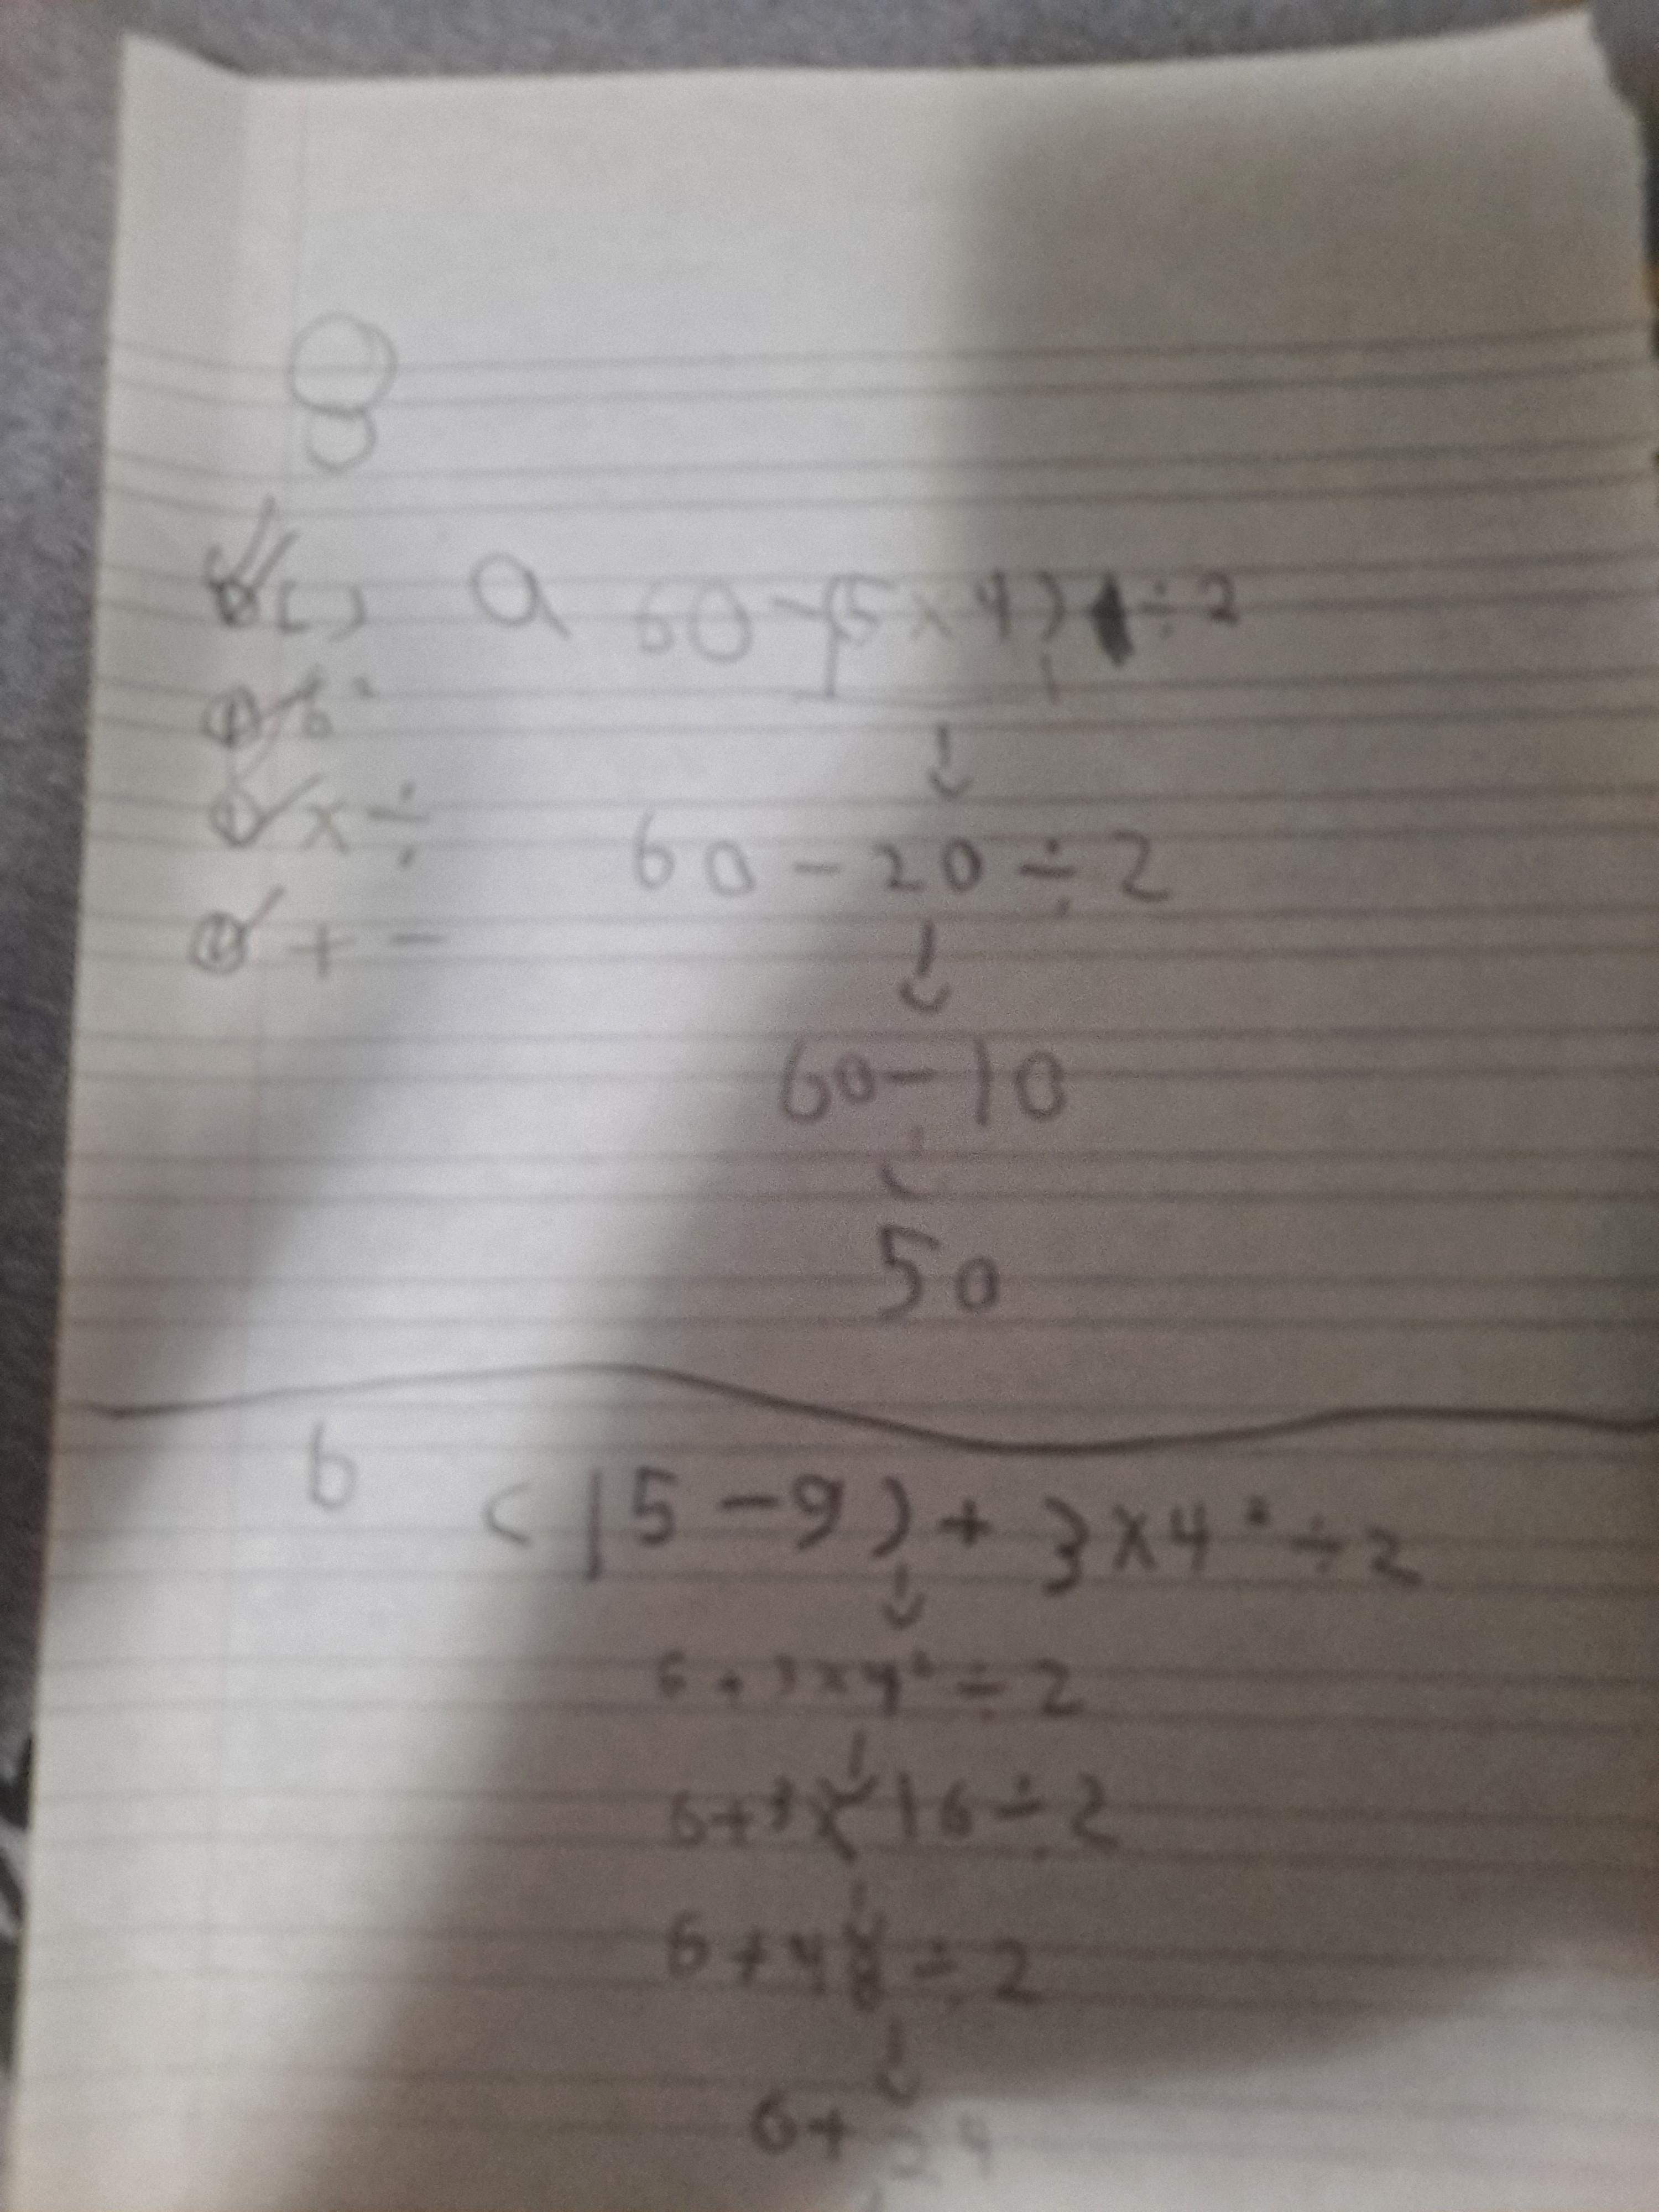 8
( ) a 60 - (5 x 4) ÷ 2
6²
x ÷
+ -
↓
60 - 20 ÷ 2
↓
60 - 10
↓
50
b (15 - 9) + 3 x 4² ÷ 2
↓
6 + 3 x 4² ÷ 2
↓
6 + 3 x 16 ÷ 2
↓
6 + 48 ÷ 2
↓
6 + 24